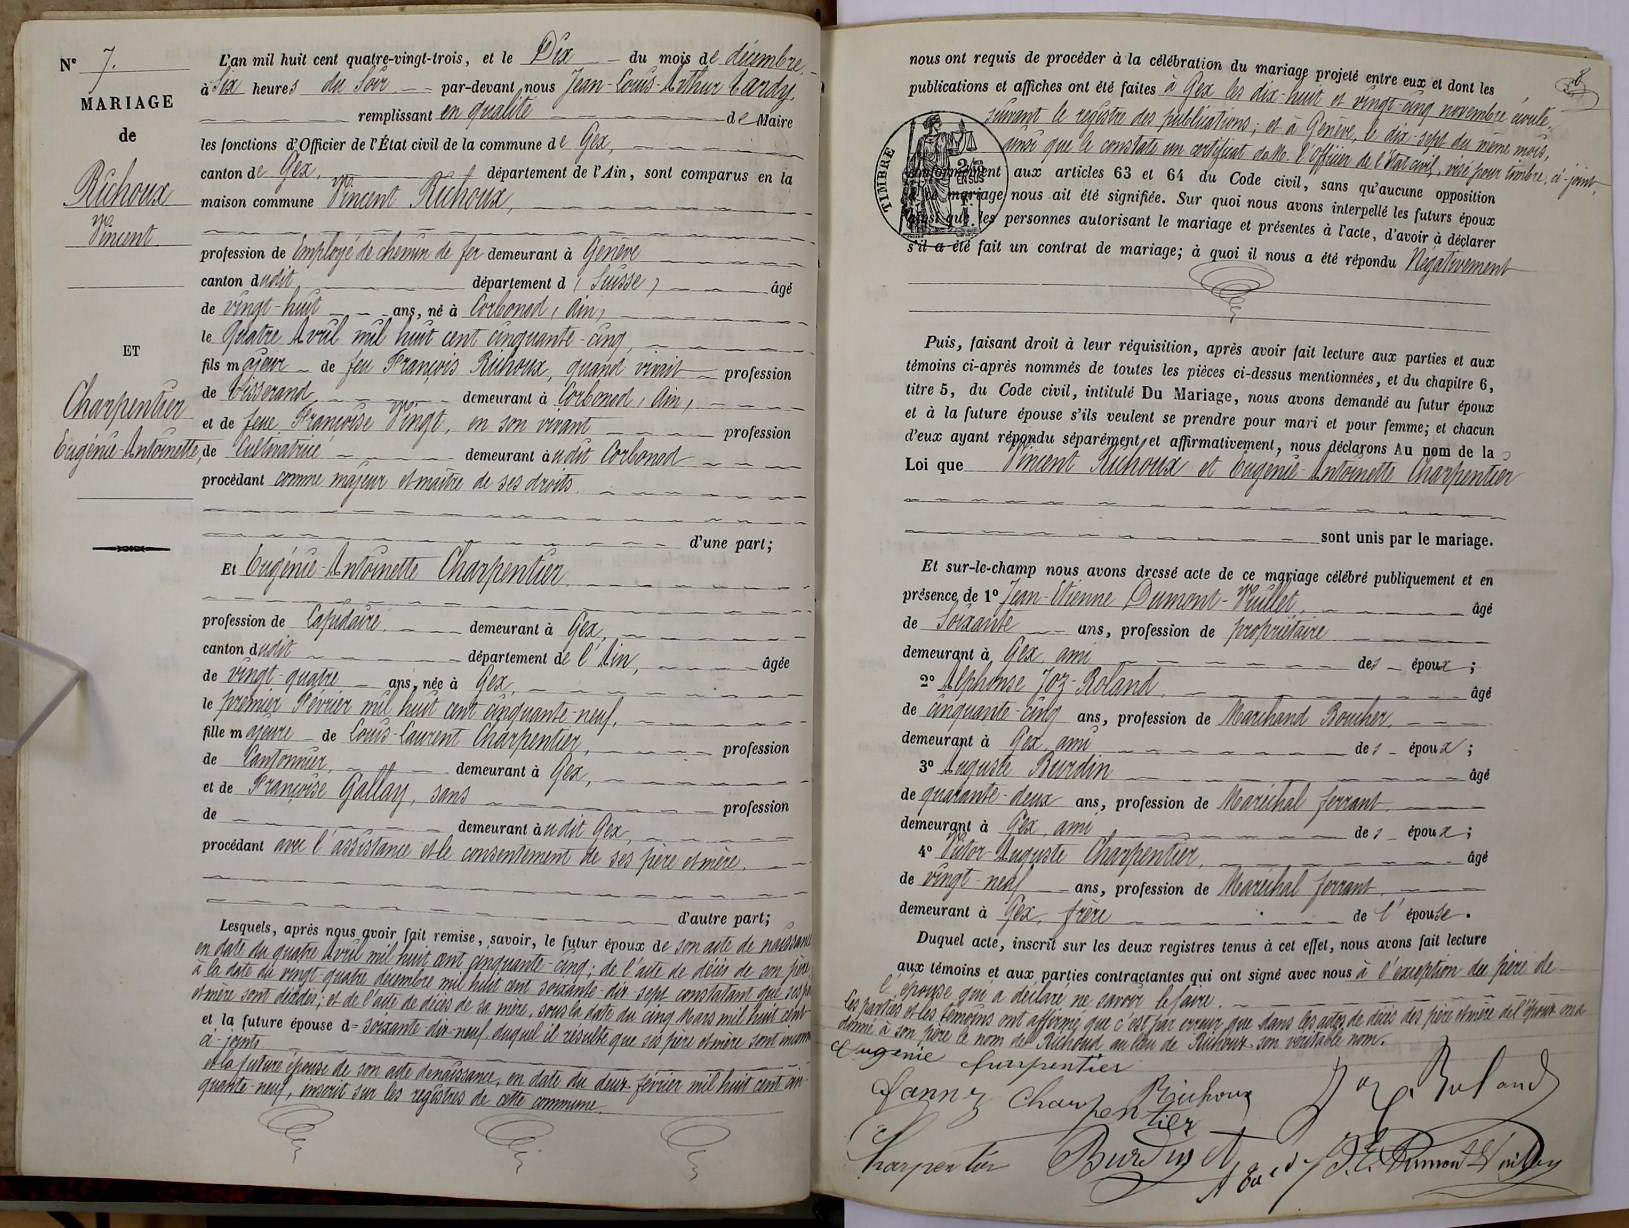 N° 7.
MARIAGE
de
Richoux
Vincent
ET
Charpentier
Eugénie-Antoinette,
L'an mil huit cent quatre-vingt-trois, et le Dix du mois de décembre
à Six heures du Soir par-devant nous Jean-Louis-Arthur Tardy
remplissant en qualité de Maire
les fonctions d'Officier de l'État civil de la commune de Gex,
canton de Gex, département de l'Ain, sont comparus en la
maison commune Vincent Richoux,
profession de Employé de chemin de fer demeurant à Genève
canton dudit département d (Suisse) âgé
de vingt-huit ans, né à Corbonod (Ain)
le Quatre Avril mil huit cent cinquante-cinq,
fils majeur de feu François Richoux, quand vivait profession
de Tisserand demeurant à Corbonod (Ain)
et de feue Françoise Vingt, en son vivant profession
de Cultivatrice demeurant audit Corbonod
procédant comme majeur et maître de ses droits
d'une part;
Et Eugénie-Antoinette Charpentier
profession de Lapidaire demeurant à Gex,
canton dudit département de l'Ain, âgée
de vingt-quatre ans, née à Gex,
le premier Février mil huit cent cinquante-neuf,
fille majeure de Louis-Laurent Charpentier, profession
de Cantonnier, demeurant à Gex,
et de Françoise Gallay, sans profession
de demeurant audit Gex,
procédant avec l'assistance et le consentement de ses père et mère.
d'autre part;
Lesquels, après nous avoir fait remise, savoir, le futur époux de son acte de naissance
en date du quatre Avril mil huit cent cinquante-cinq; de l'acte de décès de son père
à la date du vingt-quatre décembre mil huit cent soixante-dix-sept constatant que ses père
et mère sont décédés; et de l'acte de décès de sa mère, sous la date du cinq Mars mil huit cent
et la future épouse d= soixante-dix-neuf, duquel il résulte que ses père et mère sont
ci-joints
et la future épouse de son acte de naissance, en date du deux février mil huit cent cin-
quante-neuf, inscrit sur les registres de cette commune
8
nous ont requis de procéder à la célébration du mariage projeté entre eux et dont les
publications et affiches ont été faites à Gex les dix-huit et vingt-cinq novembre écoulé,
suivant le registre des publications; et à Genève, le dix-sept du même mois,
ainsi que le constate un certificat de M. l'Officier de l'État civil, visé pour timbre, ci-joint,
TIMBRE
2/10
EN SUS
conformément aux articles 63 et 64 du Code civil, sans qu'aucune opposition
à ce mariage nous ait été signifiée. Sur quoi nous avons interpellé les futurs époux
ainsi que les personnes autorisant le mariage et présentes à l'acte, d'avoir à déclarer
s'il a été fait un contrat de mariage; à quoi il nous a été répondu Négativement
Puis, faisant droit à leur réquisition, après avoir fait lecture aux parties et aux
témoins ci-après nommés de toutes les pièces ci-dessus mentionnées, et du chapitre 6,
titre 5, du Code civil, intitulé Du Mariage, nous avons demandé au futur époux
et à la future épouse s'ils veulent se prendre pour mari et pour femme; et chacun
d'eux ayant répondu séparément et affirmativement, nous déclarons Au nom de la
Loi que Vincent Richoux et Eugénie-Antoinette Charpentier
sont unis par le mariage.
Et sur-le-champ nous avons dressé acte de ce mariage célébré publiquement et en
présence de 1° Jean-Etienne Dumont-Vuillet, âgé
de Soixante ans, profession de propriétaire
demeurant à Gex, ami des époux;
2° Alphonse Joz-Roland âgé
de cinquante-cinq ans, profession de Marchand Boucher,
demeurant à Gex, ami des époux;
3° Auguste Burdin âgé
de quarante-deux ans, profession de Maréchal ferrant
demeurant à Gex, ami des époux;
4° Victor-Auguste Charpentier, âgé
de vingt-neuf ans, profession de Maréchal ferrant,
demeurant à Gex, frère de l'épouse.
Duquel acte, inscrit sur les deux registres tenus à cet effet, nous avons fait lecture
aux témoins et aux parties contractantes qui ont signé avec nous à l'exception du père de
l'épouse qui a déclaré ne savoir le faire.
Les parties et les témoins ont affirmé que c'est par erreur que dans les actes de décès des père et mère de l'époux on a
donné à son père le nom de Richoud au lieu de Richoux son véritable nom.
Eugénie Charpentier
Richoux
Joz Roland
Fanny Charpentier
Charpentier
Burdin
A Tardy
J. E. Dumont Vuillet